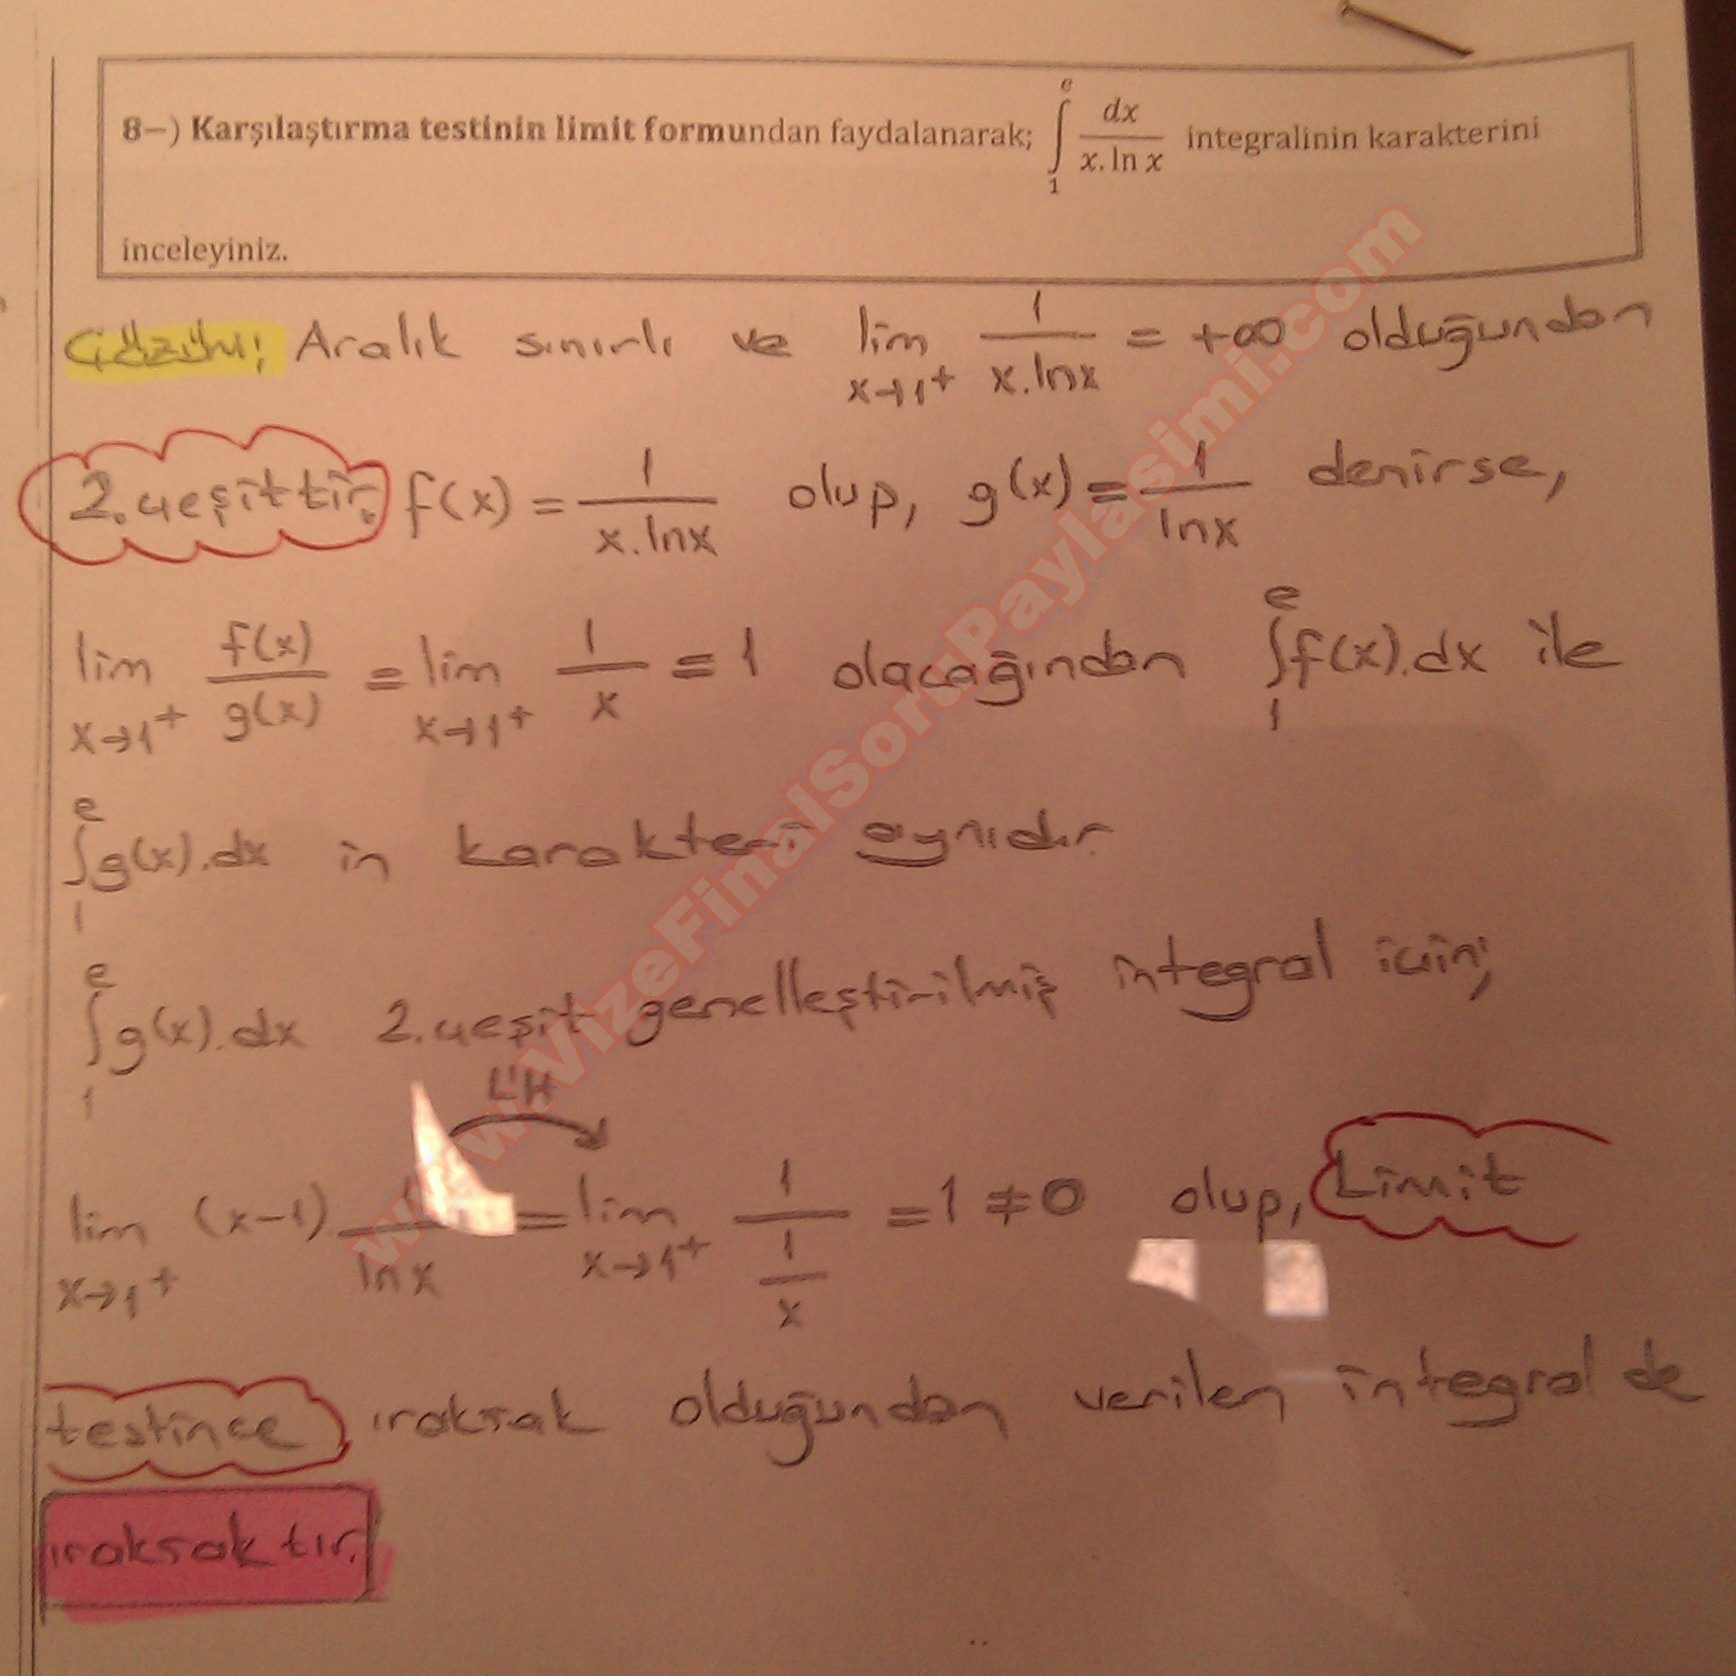 8–) Karşılaştırma testinin limit formundan faydalanarak; ∫₁ᵉ dx / (x. ln x) integralinin karakterini
inceleyiniz.
Çözüm; Aralık sınırlı ve lim x→1⁺ 1/(x.lnx) = +∞ olduğundan
2.çeşittir. f(x) = 1/(x.lnx) olup, g(x) = 1/lnx denirse,
lim x→1⁺ f(x)/g(x) = lim x→1⁺ 1/x = 1 olacağından ∫₁ᵉ f(x).dx ile
∫₁ᵉ g(x).dx in karakteri aynıdır.
∫₁ᵉ g(x).dx 2.çeşit genelleştirilmiş integral için;
L'H
lim x→1⁺ (x-1). /ln x = lim x→1⁺ 1/(1/x) = 1 ≠ 0 olup, Limit
testince ıraksak olduğundan verilen integral de
ıraksaktır.
www.VizeFinalSoruPaylasimi.com